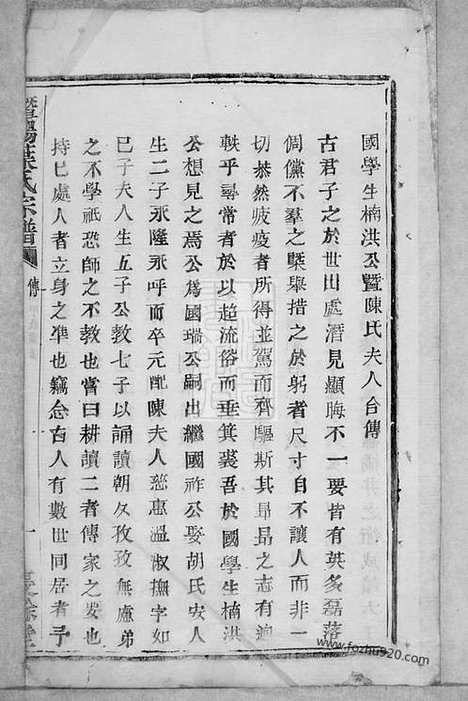 國學生楠洪公暨陳氏夫人合傳
古君子之於世出處潛見顯晦不一要皆有英多磊落
倜儻不羣之槩舉措之於躬者尺寸自不讓人而非一
切恭然疲疫者所得並駕而齊驅斯其昻昻之志有逈
軼乎尋常者於以超流俗而垂箕裘吾於國學生楠洪
公想見之焉公爲國瑞公嗣出繼國祚公娶胡氏安人
生二子永隆永呼而卒元配陳夫人慈惠溫淑撫字如
已子夫人生五子公教七子以誦讀朝久孜孜無慮弟
之不學祇恐師之不教也嘗曰耕讀二者傳家之要也
持已處人者立身之準也竊念古人有數世同居者予
暨陽 氏宗譜
傳
一
www.fozhu920.com